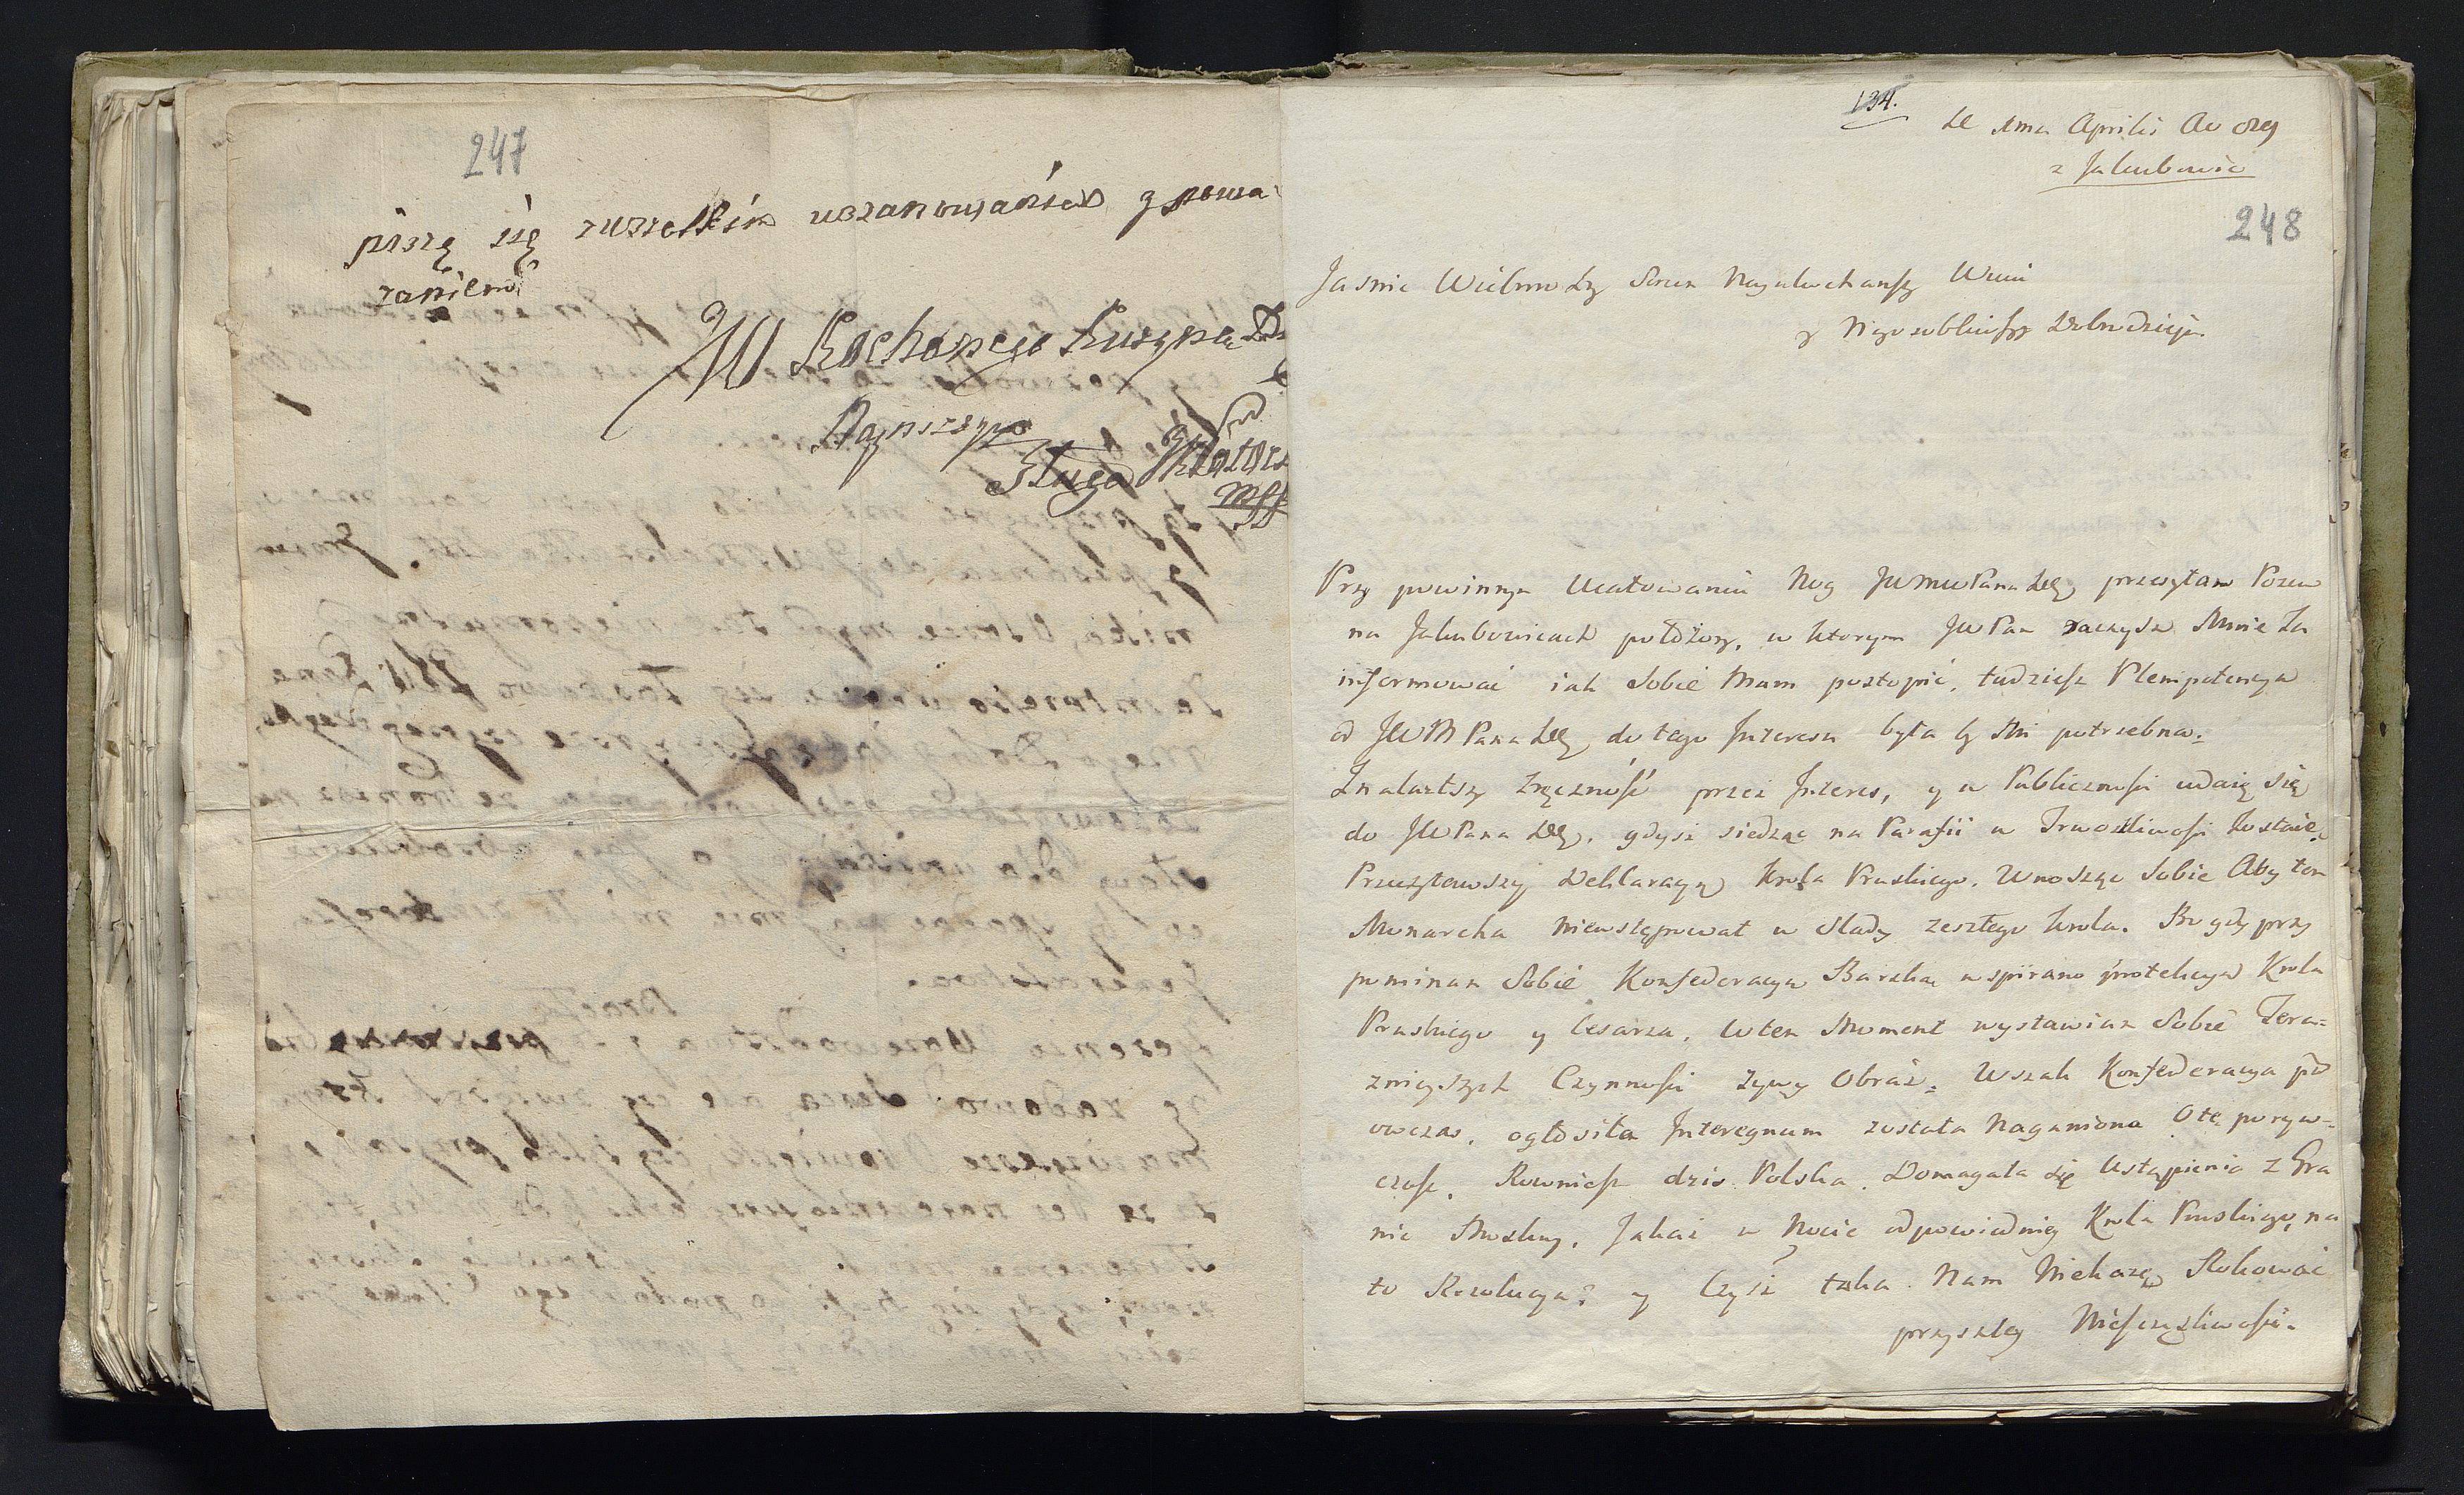 247
piszę się z wszelkim uszanowaniem y powa
zaniem
JW Kochanego Kuzyna
Nayniszszym
Sługa
mpp
134.
Aprilis
z Jakubowic
248
Jasnie Wielmozny Panie
y Nayosobliwszy Dobrodzieju
Przy powinnym Ucałowaniu Nog JWMWPana Dbg przesyłam Pozew
na Jakubowicach położony, w ktorym JWPan raczysz Mnie Za
informować iak Sobie Mam postopić, tudziesz Plempotencya
od JWMPana Dbg do tego Interesu była by Mi potrzebna.
Znalaztszy Zręczność przez Interes, y w Publicznosci udaię Się
do JWPana Dbg. gdysz siedząc na Parafii w Trwozliwosci Zostaię.
Przeczytawszy Deklaracyą Krola Pruskiego. Wnosząc Sobie Aby ten
Monarcha niewstępował w Slady zeszłego Krola. Bo gdy przy
pominam Sobie Konfederacya Barska wspirano protekcya Krola
Pruskiego y Cesarza. w ten Moment wystawiam Sobie Tera=
znieyszych Czynnosci zywy Obraz. Wszak Konfederacya po
owczas, ogłosiła Interegnum została Naganiona Otę poryw=
czosc. Rowniesz dzis Polska Domagała się Ustąpienia z Gra
nic Moskwy. Jakaż w Nocie odpowiedniey Krola Pruskiego, na
to Rewolucya? y Czyliż taka Nam Niekazę Rokować
przyszley Nieszczęsliwosci.